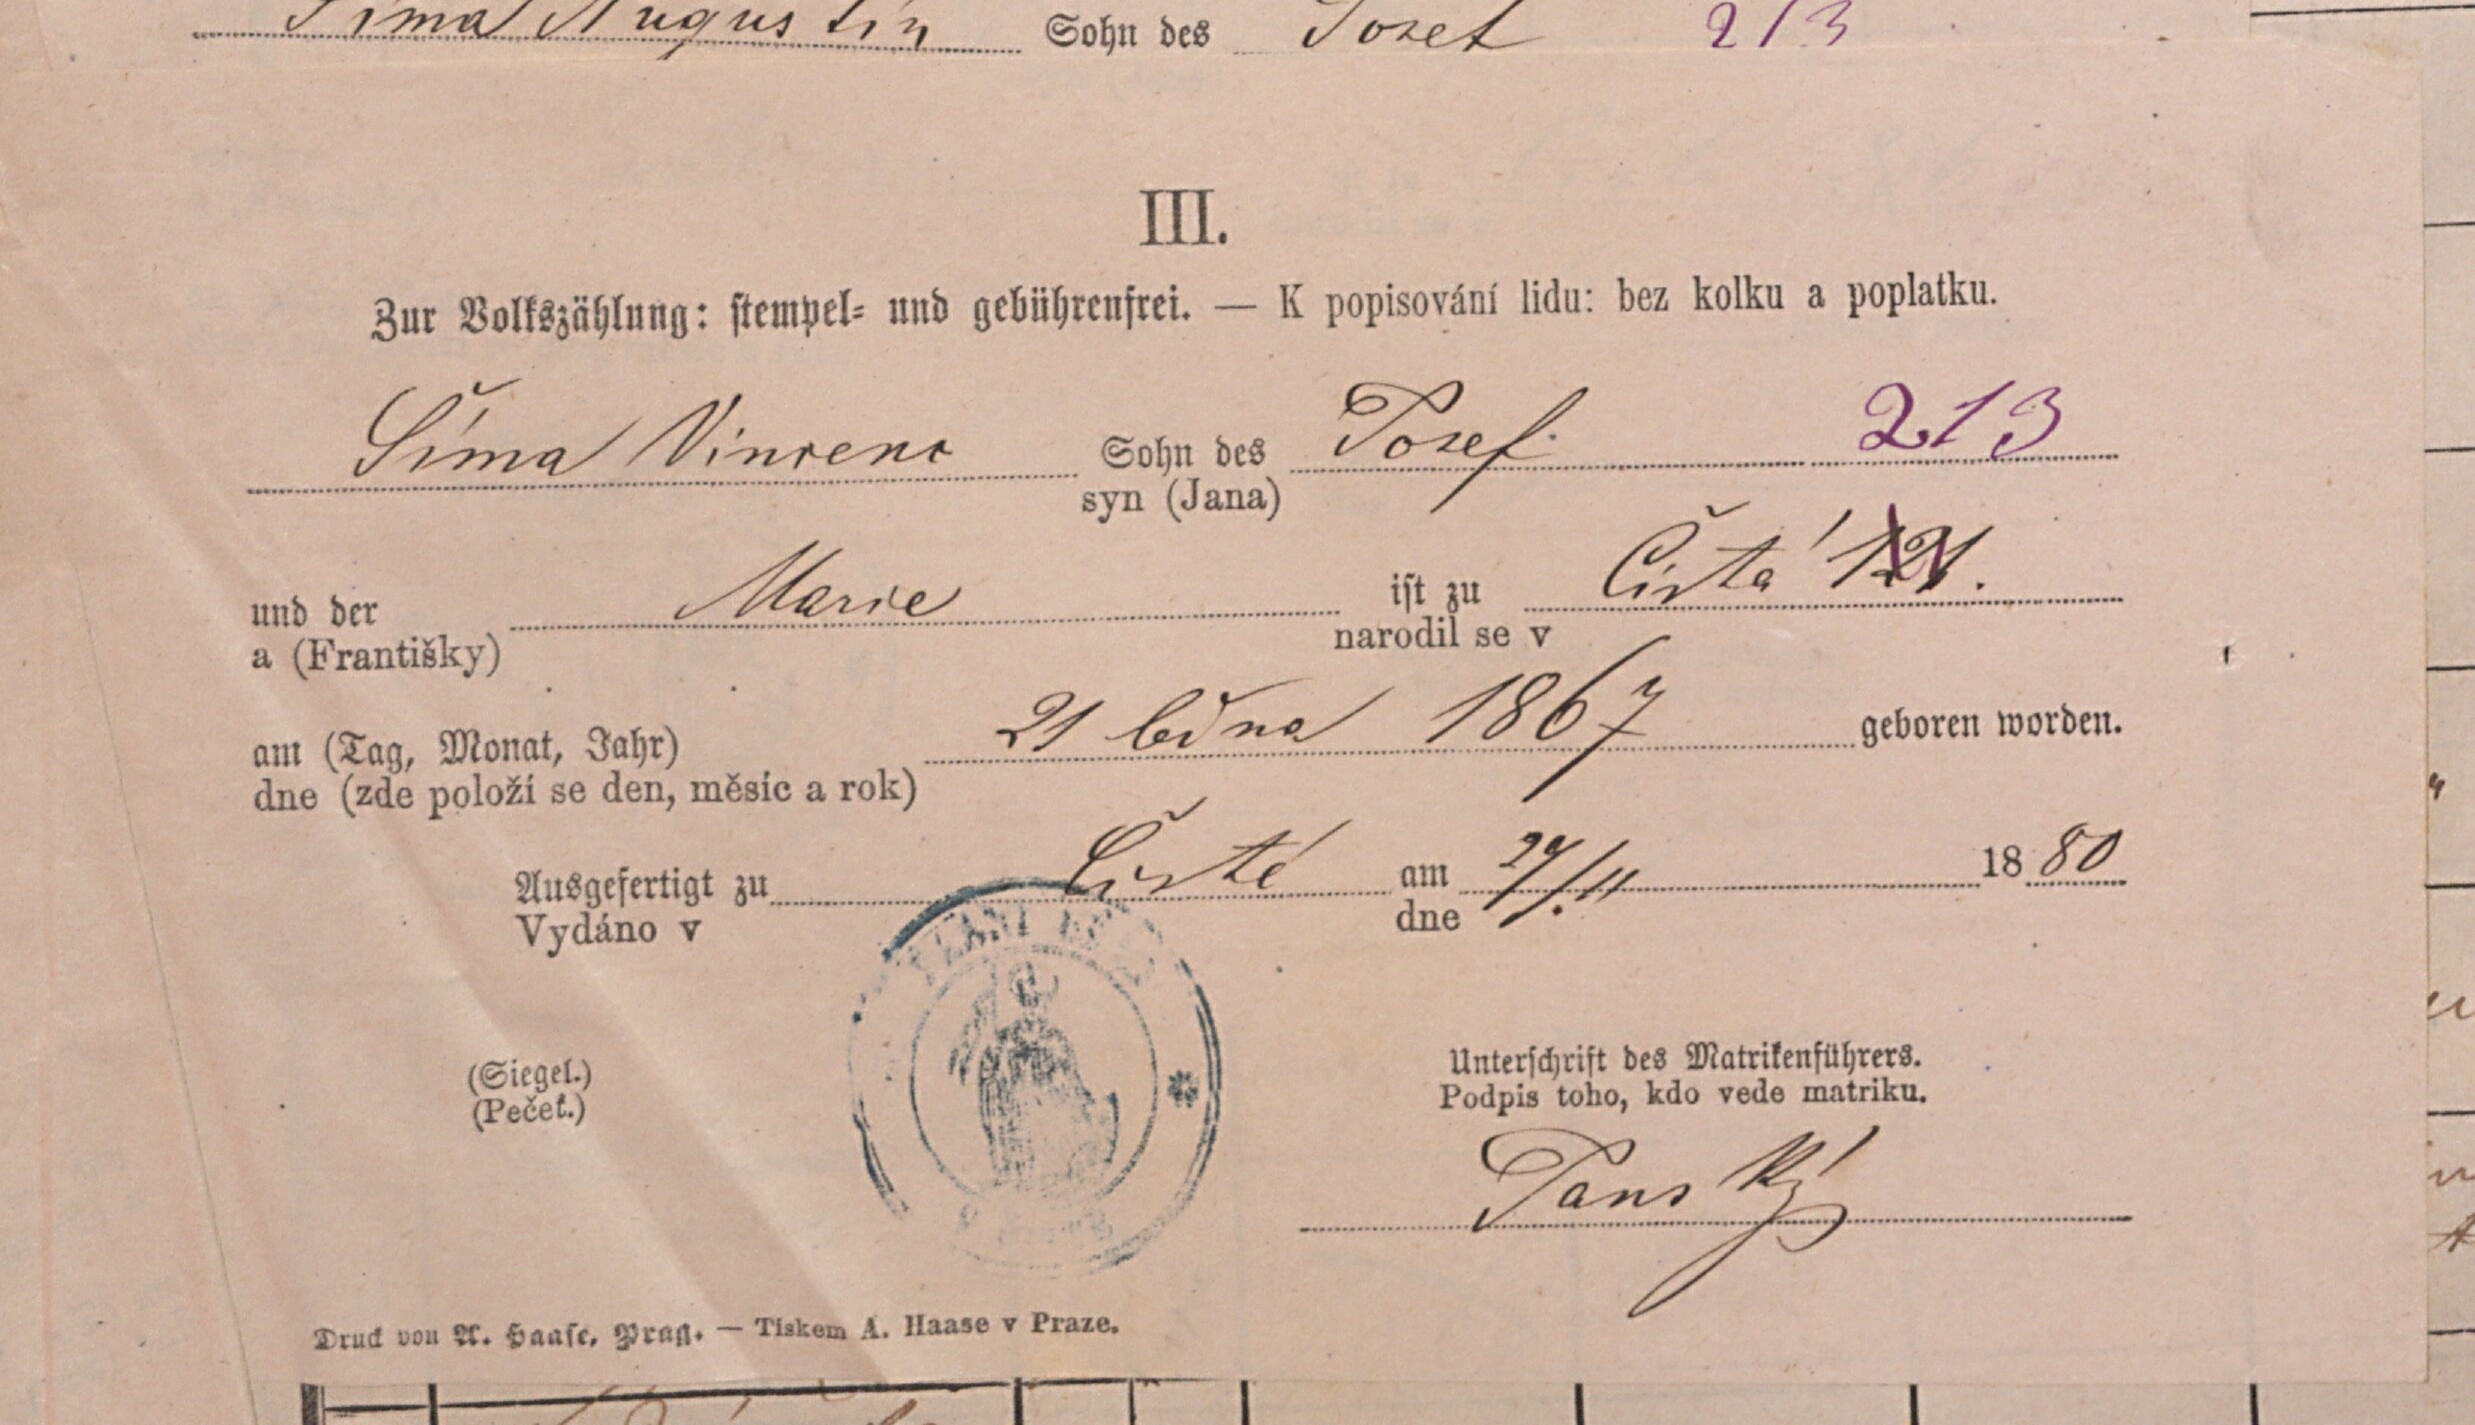 Šíma Augustin Sohn des Josef 213
III.
Zur Volkszählung: stempel- und gebührenfrei. — K popisování lidu: bez kolku a poplatku.
Šíma Vincenc Sohn des Josef 213
syn (Jana)
und der Marie ist zu Čistá
a (Františky) narodil se v
am (Tag, Monat, Jahr) 21 ledna 1867 geboren worden.
dne (zde položí se den, měsíc a rok)
Ausgefertigt zu Čisté am 29/11 1880
Vydáno v dne
(Siegel.)
(Pečeť.)
Unterschrift des Matrikenführers.
Podpis toho, kdo vede matriku.
Druck von A. Haase, Prag. — Tiskem A. Haase v Praze.